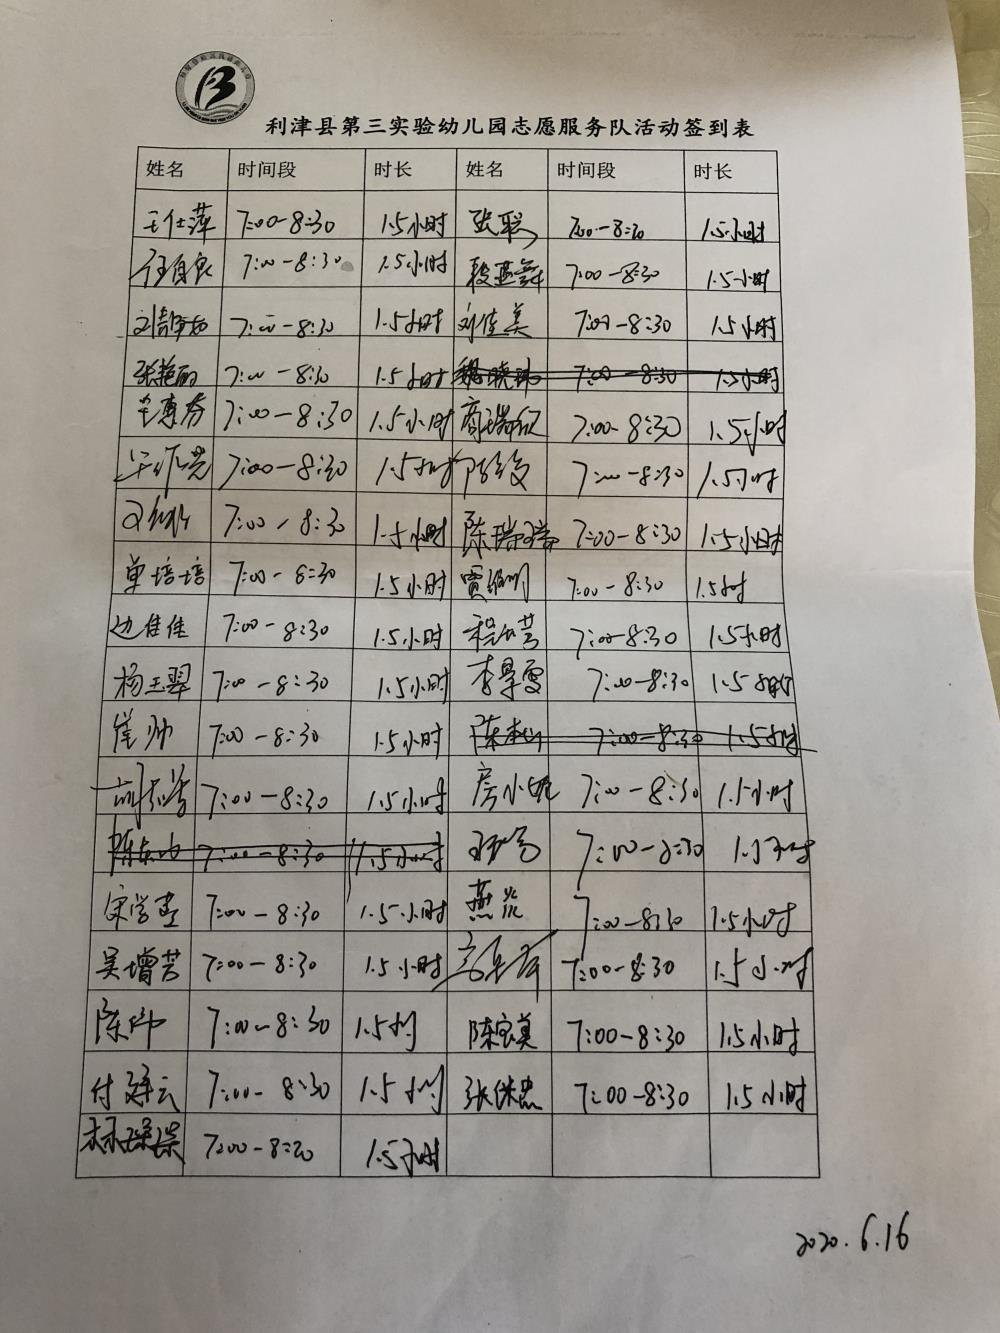 利津县第三实验幼儿园志愿服务队活动签到表
姓名 时间段 时长 姓名 时间段 时长
王仕萍 7:00-8:30 1.5小时 张聪 7:00-8:30 1.5小时
7:00-8:30 1.5小时 段燕舞 7:00-8:30 1.5小时
刘静茹 7:00-8:30 1.5小时 刘佳美 7:00-8:30 1.5小时
张艳丽 7:00-8:30 1.5小时 魏晓玮 7:00-8:30 1.5小时
7:00-8:30 1.5小时 商瑞欣 7:00-8:30 1.5小时
7:00-8:30 1.5小时 7:00-8:30 1.5小时
7:00-8:30 1.5小时 陈瑞瑞 7:00-8:30 1.5小时
单培培 7:00-8:30 1.5小时 7:00-8:30 1.5小时
边佳佳 7:00-8:30 1.5小时 7:00-8:30 1.5小时
杨玉翠 7:00-8:30 1.5小时 李景雪 7:00-8:30 1.5小时
崔帅 7:00-8:30 1.5小时 7:00-8:30 1.5小时
7:00-8:30 1.5小时 房小妮 7:00-8:30 1.5小时
7:00-8:30 1.5小时 7:00-8:30 1.5小时
7:00-8:30 1.5小时 7:00-8:30 1.5小时
吴增芳 7:00-8:30 1.5小时 7:00-8:30 1.5小时
陈帅 7:00-8:30 1.5小时 陈宝真 7:00-8:30 1.5小时
7:00-8:30 1.5小时 7:00-8:30 1.5小时
林琛琛 7:00-8:30 1.5小时
2020.6.16